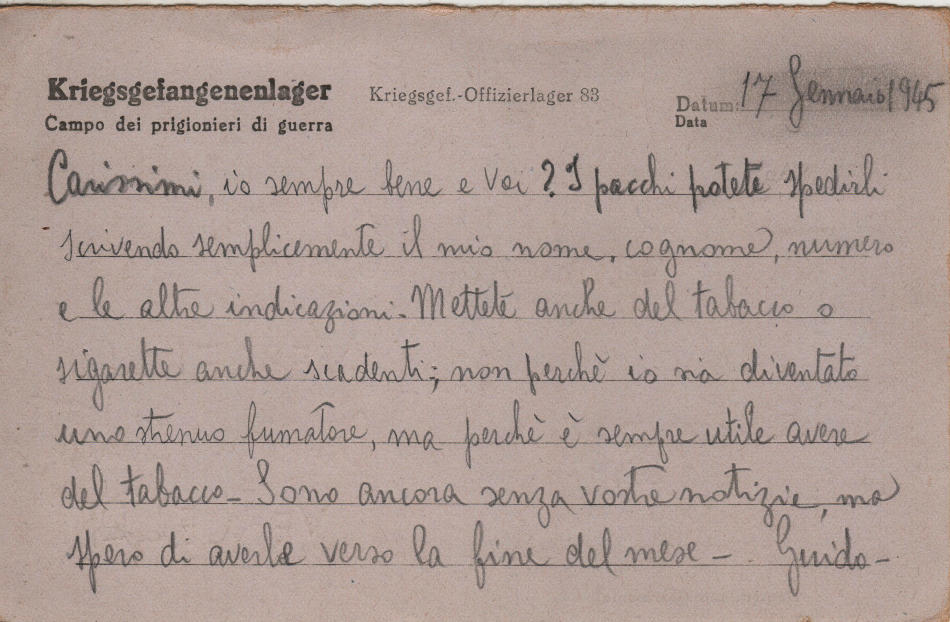 Kriegsgefangenenlager Kriegsgef.-Offizierlager 83 Datum: 17 Gennaio 1945
Campo dei prigionieri di guerra Data
Carissimi, io sempre bene e voi? I pacchi potete spedirli
scrivendo semplicemente il mio nome, cognome, numero
e le altre indicazioni. Mettete anche del tabacco o
sigarette anche scadenti; non perchè io sia diventato
uno strenuo fumatore, ma perchè è sempre utile avere
del tabacco - Sono ancora senza vostre notizie, ma
spero di averle verso la fine del mese - Guido -